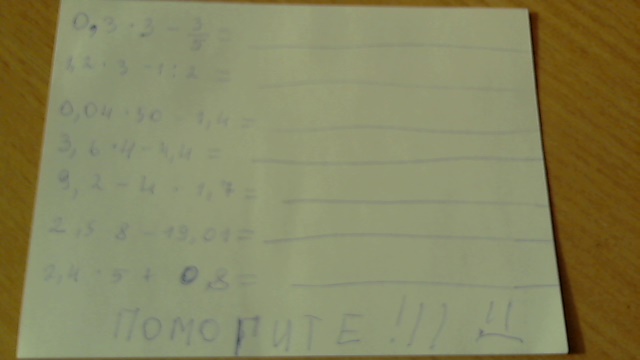 0,3 · 3 - 3/5 =
1,2 · 3 - 1 : 2 =
0,04 · 50 - 1,4 =
3,6 · 4 - 4,4 =
9,2 - 4 · 1,7 =
2,5 8 - 19,01 =
7,4 · 5 + 0,8 =
ПОМОГИТЕ !))